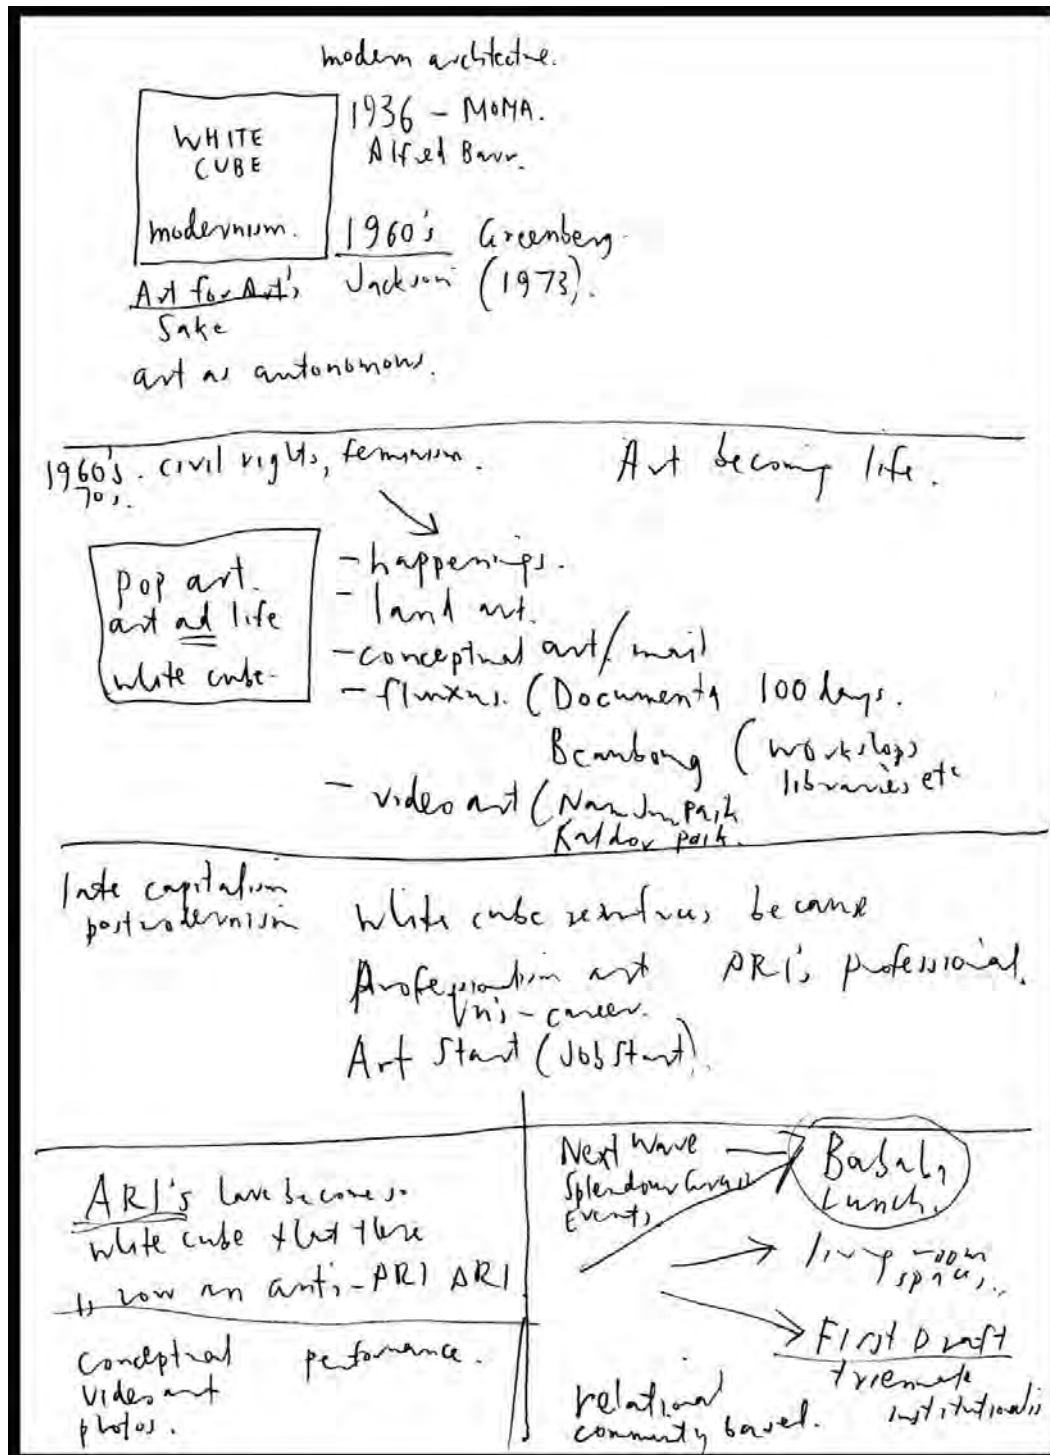 modern architecture.
WHITE
CUBE
modernism.
1936 - MOMA.
Alfred Barr.
1960's Greenberg.
Jackson (1973).
Art for Art's
Sake
art as autonomous.
1960's. civil rights, feminism.
70s.
Art becoming life.
pop art.
art ad life
white cube.
- happenings.
- land art.
- conceptual art/mail
- fluxus. (Documenta 100 days.
(workshops
libraries etc
- video art (Nam Jun Paik
Kaldor paik.
late capitalism
postmodernism
white cube because
art ARI's professional.
career.
Art Start (JobStart).
ARI's have become so
white cube that there
is now an anti-ARI ARI
conceptual performance.
video art
photos.
Next Wave
Splendour
Events
Lunch.
living room
spaces...
First Draft
relational
community based.